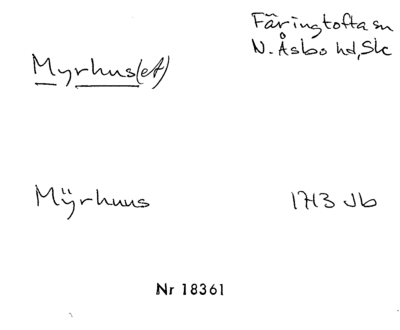 Färingtofta sn
N. Åsbo hd, Sk
Myrhus(et)
Mÿrhuus 1713 Jb
Nr 18361